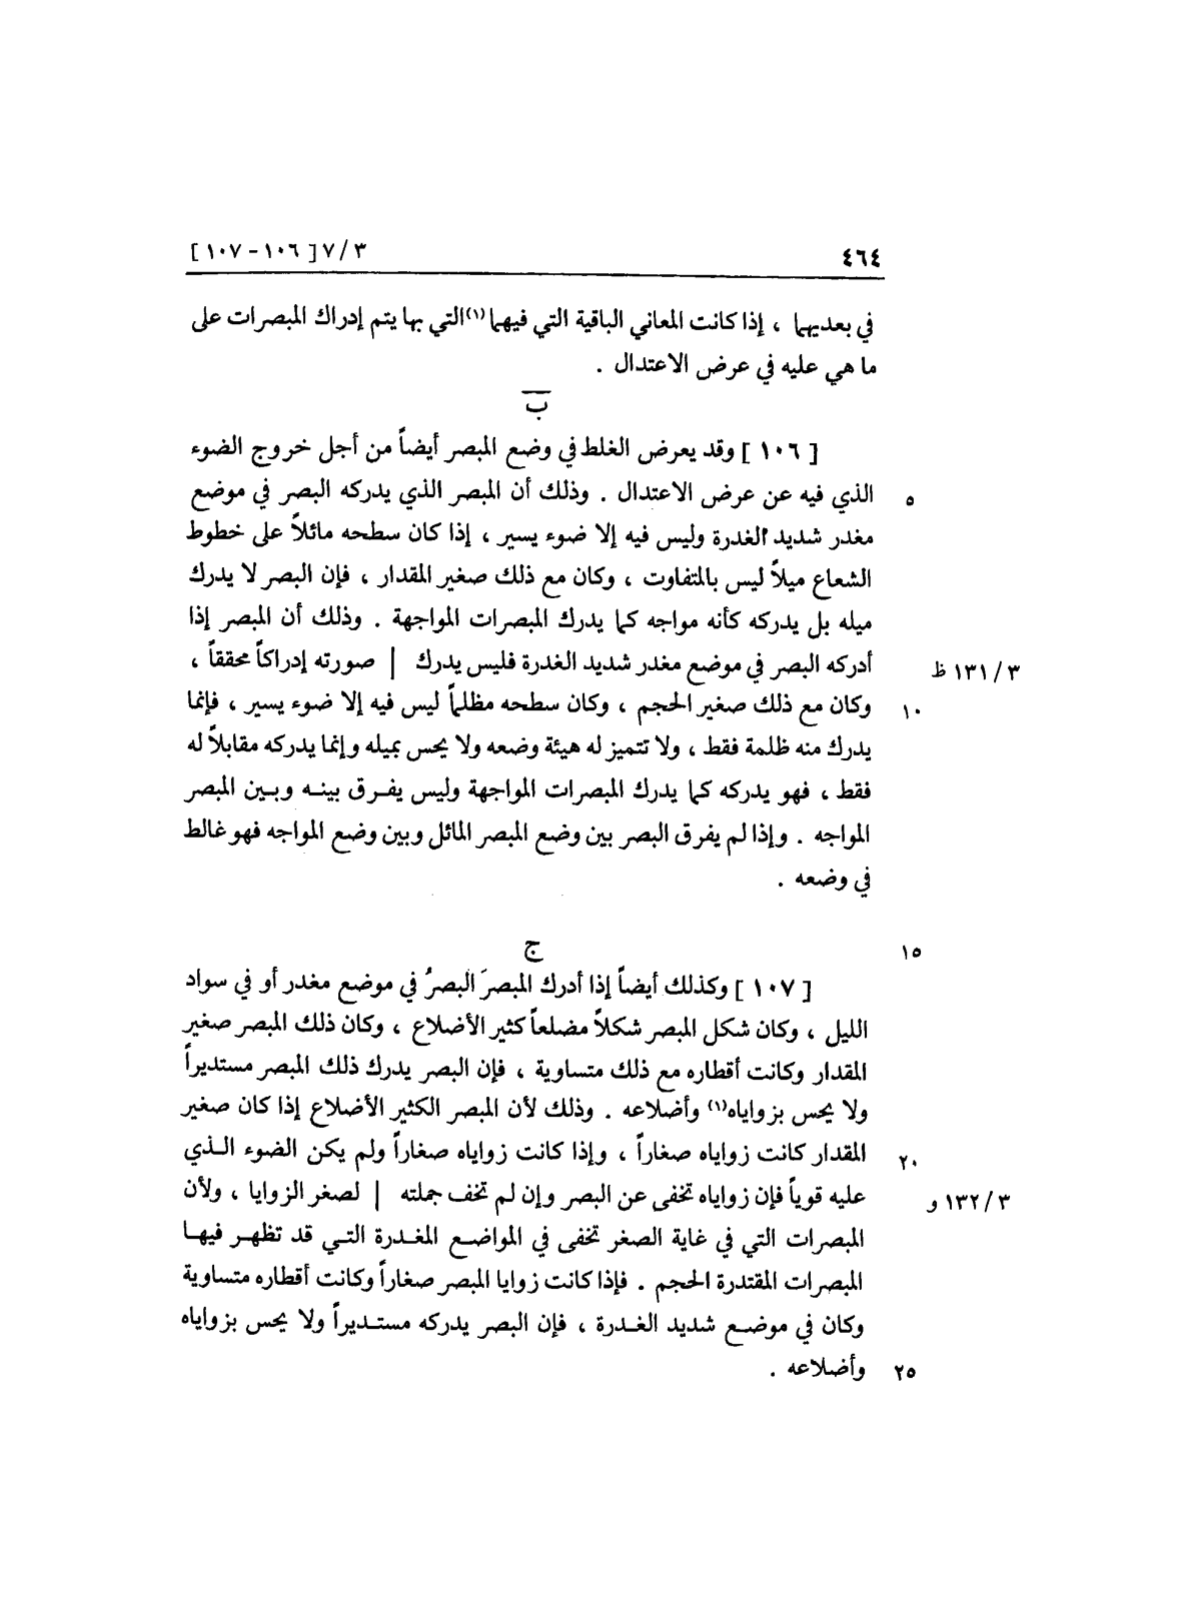 ٤٦٤ ٣ / ٧ [ ١٠٦ - ١٠٧ ]
في بعديهما ، إذا كانت المعاني الباقية التي فيهما(١) التي بها يتم إدراك المبصرات على
ما هي عليه في عرض الاعتدال .
ب
[ ١٠٦ ] وقد يعرض الغلط في وضع المبصر أيضاً من أجل خروج الضوء
٥ الذي فيه عن عرض الاعتدال . وذلك أن المبصر الذي يدركه البصر في موضع
مغدر شديد الغدرة وليس فيه إلا ضوء يسير ، إذا كان سطحه مائلاً على خطوط
الشعاع ميلاً ليس بالمتفاوت ، وكان مع ذلك صغير المقدار ، فإن البصر لا يدرك
ميله بل يدركه كأنه مواجه كما يدرك المبصرات المواجهة . وذلك أن المبصر إذا
٣ / ١٣١ ظ أدركه البصر في موضع مغدر شديد الغدرة فليس يدرك | صورته إدراكاً محققاً ،
١٠ وكان مع ذلك صغير الحجم ، وكان سطحه مظلماً ليس فيه إلا ضوء يسير ، فإنما
يدرك منه ظلمة فقط ، ولا تتميز له هيئة وضعه ولا يحس بميله وإنما يدركه مقابلاً له
فقط ، فهو يدركه كما يدرك المبصرات المواجهة وليس يفرق بينه وبين المبصر
المواجه . وإذا لم يفرق البصر بين وضع المبصر المائل وبين وضع المواجه فهو غالط
في وضعه .
١٥ ج
[ ١٠٧ ] وكذلك أيضاً إذا أدرك المبصرَ البصرُ في موضع مغدر أو في سواد
الليل ، وكان شكل المبصر شكلاً مضلعاً كثير الأضلاع ، وكان ذلك المبصر صغير
المقدار وكانت أقطاره مع ذلك متساوية ، فإن البصر يدرك ذلك المبصر مستديراً
ولا يحس بزواياه(١) وأضلاعه . وذلك لأن المبصر الكثير الأضلاع إذا كان صغير
٢٠ المقدار كانت زواياه صغاراً ، وإذا كانت زواياه صغاراً ولم يكن الضوء الذي
٣ / ١٣٢ و عليه قوياً فإن زواياه تخفى عن البصر وإن لم تخف جملته | لصغر الزوايا ، ولأن
المبصرات التي في غاية الصغر تخفى في المواضع المغدرة التي قد تظهر فيها
المبصرات المقتدرة الحجم . فإذا كانت زوايا المبصر صغاراً وكانت أقطاره متساوية
وكان في موضع شديد الغدرة ، فإن البصر يدركه مستديراً ولا يحس بزواياه
٢٥ وأضلاعه .